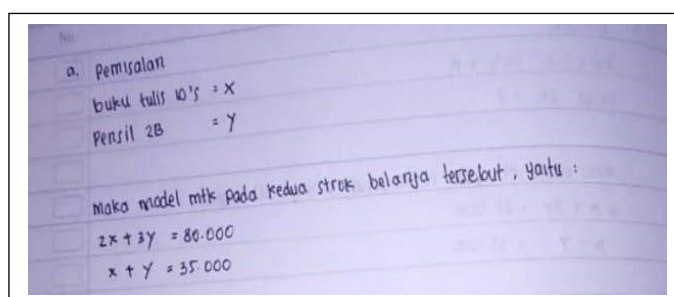 No
a. Pemisalan
buku tulis 10's = X
Pensil 2B = Y
maka model mtk pada kedua struk belanja tersebut, yaitu :
2x + 3y = 80.000
x + y = 35.000